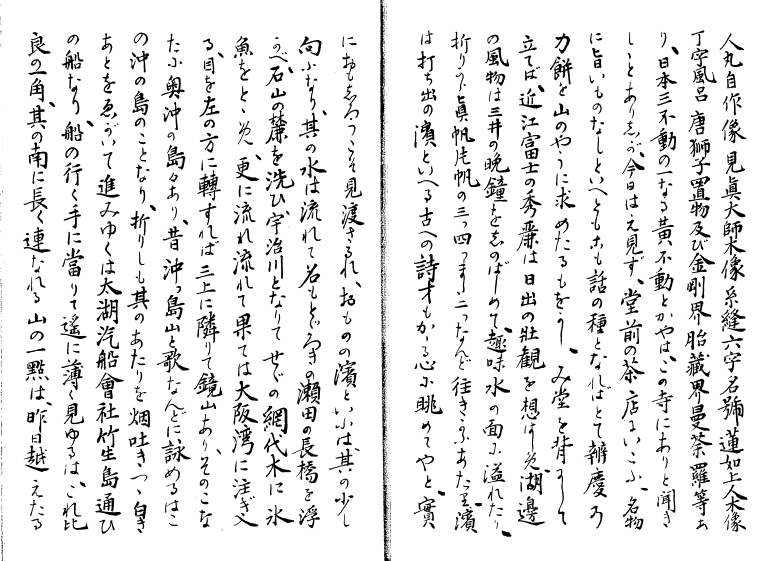 人丸自作像 見眞大師木像 糸縫六字名號 蓮如上人木像
丁字風呂 唐獅子置物及び金剛界 胎藏界曼荼羅等あ
り、日本三不動の一なる黄不動とかやは、この寺にありと聞き
しことありしが、今日はえ見ず、堂前の茶店にいこふ、名物
に旨いものなしといへどもこも話の種となればとて辨慶の
力餅を山のやうに求めたるもをかし、み堂を背にして
立てば、近江富士の秀麗は日出の壯観を想はしめ、湖邊
の風物は三井の晩鐘をしのばしめて、趣味水の面に溢れたり、
折りふし眞帆片帆の三つ四つ二つなんど往きかふあたり、濱
は打ち出の濱といへる古への詩才もかゝる心に眺めてやと、實
におもしろうこそ見渡さるれ、おものの濱といふは、其の少し
向ふなり、其の水は流れて名もとゞろきの瀬田の長橋を浮
かべ、石山の麓を洗ひ、宇治川となりてせゞの網代木に氷
魚をとゞめ、更に流れ流れて果ては大阪湾に注ぎ入
る、目を左の方に轉ずれば三上に隣りて鏡山あり、そのこな
たに奥沖の島々あり、昔 沖つ島山と歌なんどに詠めるはこ
の沖の島のことなり、折りしも其のあたりを烟吐きつゝ白き
あとをゑがいて進みゆくは太湖汽船會社竹生島通ひ
の船なり、船の行く手に當りて遙に薄く見ゆるは、これ比
良の一角、其の南に長く連なれる山の一點は、昨日越えたる